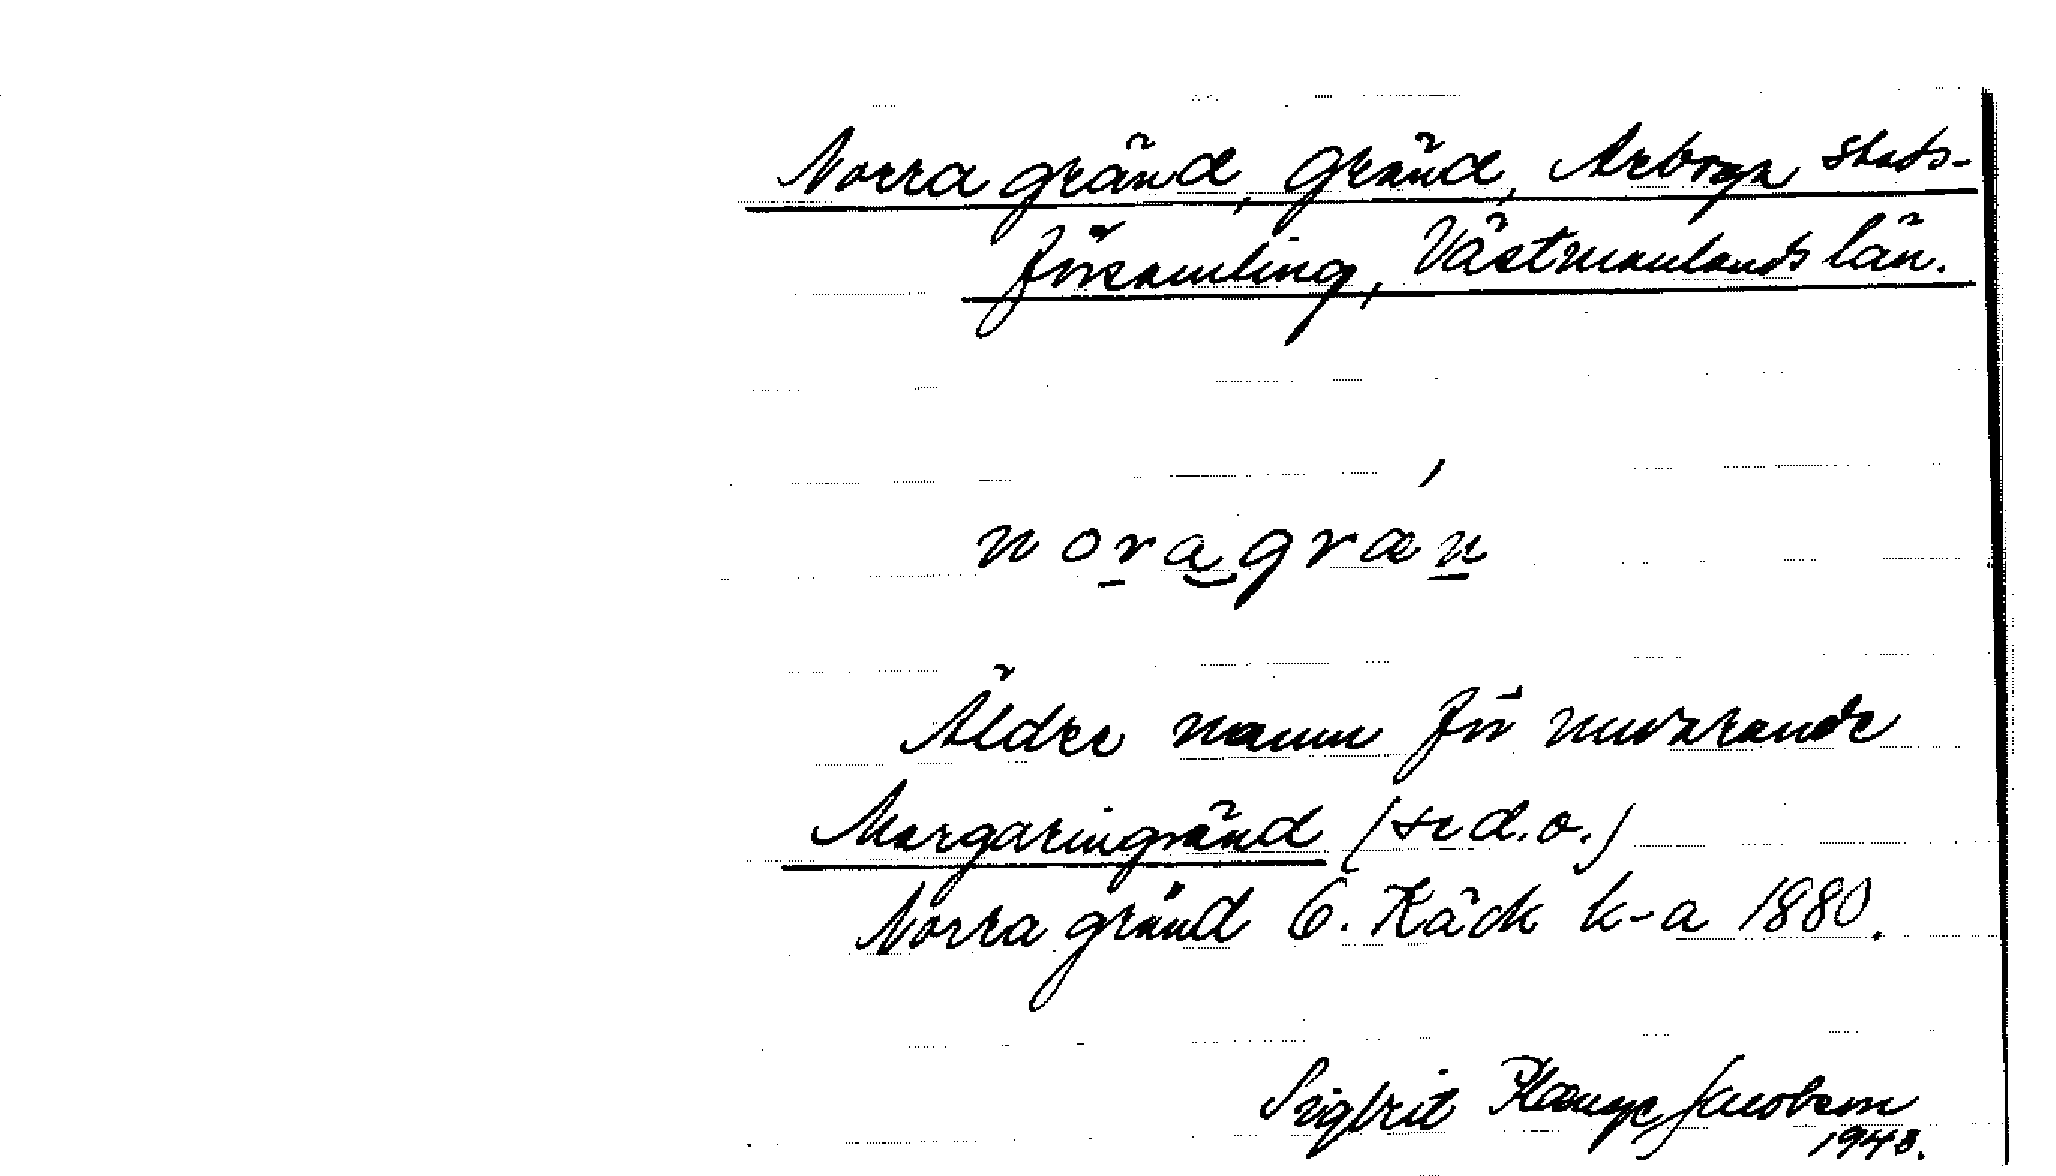 Norra gränd, gränd, Arboga stads-
församling, Västmanlands län.
noragrän
Äldre namn för nuvarande
Margaringränd (se d. o.)
Norra gränd C. Käck k-a 1880.
Sigbrit Plænge Jacobson
1948.